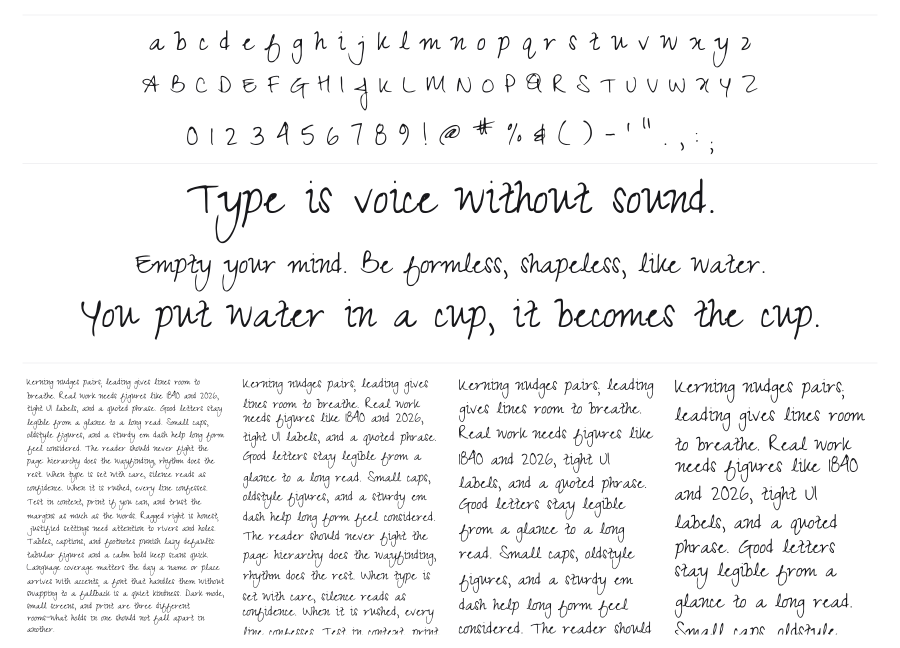 a b c d e f g h i j k l m n o p q r s t u v w x y z
A B C D E F G H I J K L M N O P Q R S T U V W X Y Z
0 1 2 3 4 5 6 7 8 9 ! @ # % & ( ) - ' " . , : ;
Type is voice without sound.
Empty your mind. Be formless, shapeless, like water.
You put water in a cup, it becomes the cup.
Kerning nudges pairs, leading gives lines room to
breathe. Real work needs figures like 1840 and 2026,
tight UI labels, and a quoted phrase. Good letters stay
legible from a glance to a long read. Small caps,
oldstyle figures, and a sturdy em dash help long form
feel considered. The reader should never fight the
page hierarchy does the wayfinding, rhythm does the
rest. When type is set with care, silence reads as
confidence. When it is rushed, every line confesses.
Test in context, print if you can, and trust the
margins as much as the words. Ragged right is honest,
justified settings need attention to rivers and holes.
Tables, captions, and footnotes punish lazy defaults
tabular figures and a calm bold keep scans quick.
Language coverage matters the day a name or place
arrives with accents, a font that handles them without
swapping to a fallback is a quiet kindness. Dark mode,
small screens, and print are three different
rooms-what holds in one should not fall apart in
another.
Kerning nudges pairs, leading gives
lines room to breathe. Real work
needs figures like 1840 and 2026,
tight UI labels, and a quoted phrase.
Good letters stay legible from a
glance to a long read. Small caps,
oldstyle figures, and a sturdy em
dash help long form feel considered.
The reader should never fight the
page hierarchy does the wayfinding,
rhythm does the rest. When type is
set with care, silence reads as
confidence. When it is rushed, every
line confesses. Test in context, print
Kerning nudges pairs, leading
gives lines room to breathe.
Real work needs figures like
1840 and 2026, tight UI
labels, and a quoted phrase.
Good letters stay legible
from a glance to a long
read. Small caps, oldstyle
figures, and a sturdy em
dash help long form feel
considered. The reader should
Kerning nudges pairs,
leading gives lines room
to breathe. Real work
needs figures like 1840
and 2026, tight UI
labels, and a quoted
phrase. Good letters
stay legible from a
glance to a long read.
Small caps, oldstyle